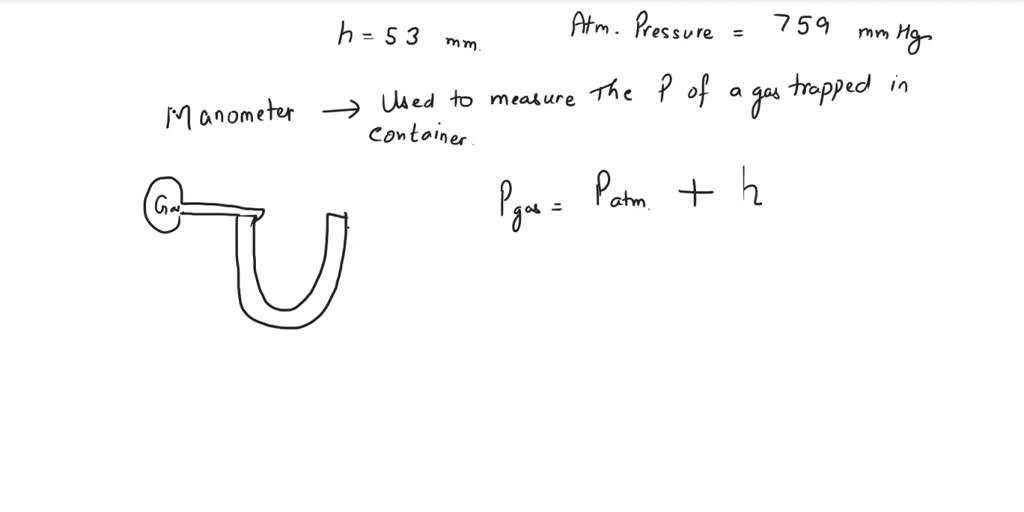 h = 53 mm.
Atm. Pressure = 759 mm Hg
Manometer → Used to measure The P of a gas trapped in
container.
Gas
Pgas = Patm. + h